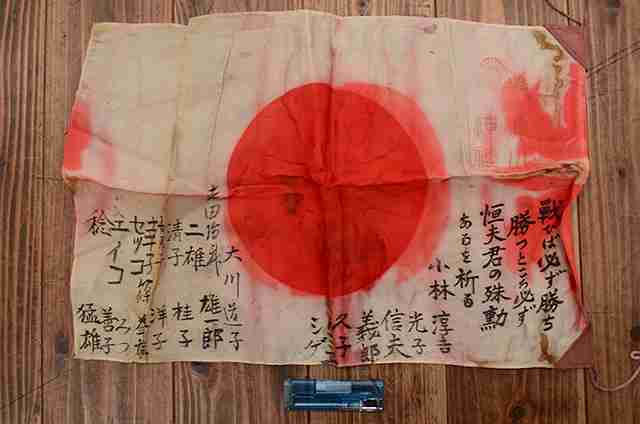 戦へば必ず勝ち
勝つところ必ず
恒夫君の殊勲
あるを祈る
小林 淳吉
光子
信夫
義郎
久子
シゲ
大川 道子
雄郎
二雄
清子 桂子
洋子
セツコ
エイコ みつ
善子
稔 猛雄